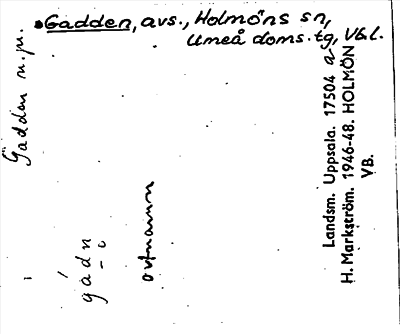 Gadden, avs., Holmöns sn,
Umeå doms.tg, Vbl.
Gadden n.pr.
gádn
ortnamn
Landsm. Uppsala. 17504 a
H. Markström. 1946-48. HOLMÖN
VB.